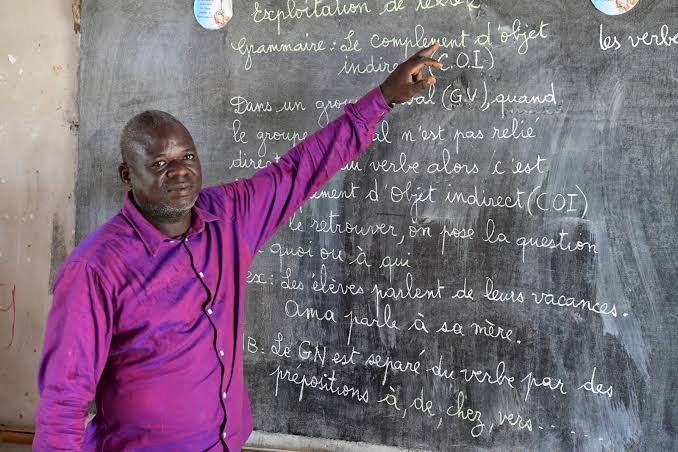 Exploitation de texte
Grammaire : Le complément d'objet
(C.O.I)
les verbe
Dans un (G.V), quand
le groupe n'est pas relié
verbe alors c'est
d'objet indirect (COI)
le retrouver, on pose la question
quoi ou à qui
ex : Les élèves parlent de leurs vacances.
Ama parle à sa mère.
Le GN est séparé du verbe par des
prépositions à, de, chez, vers.....